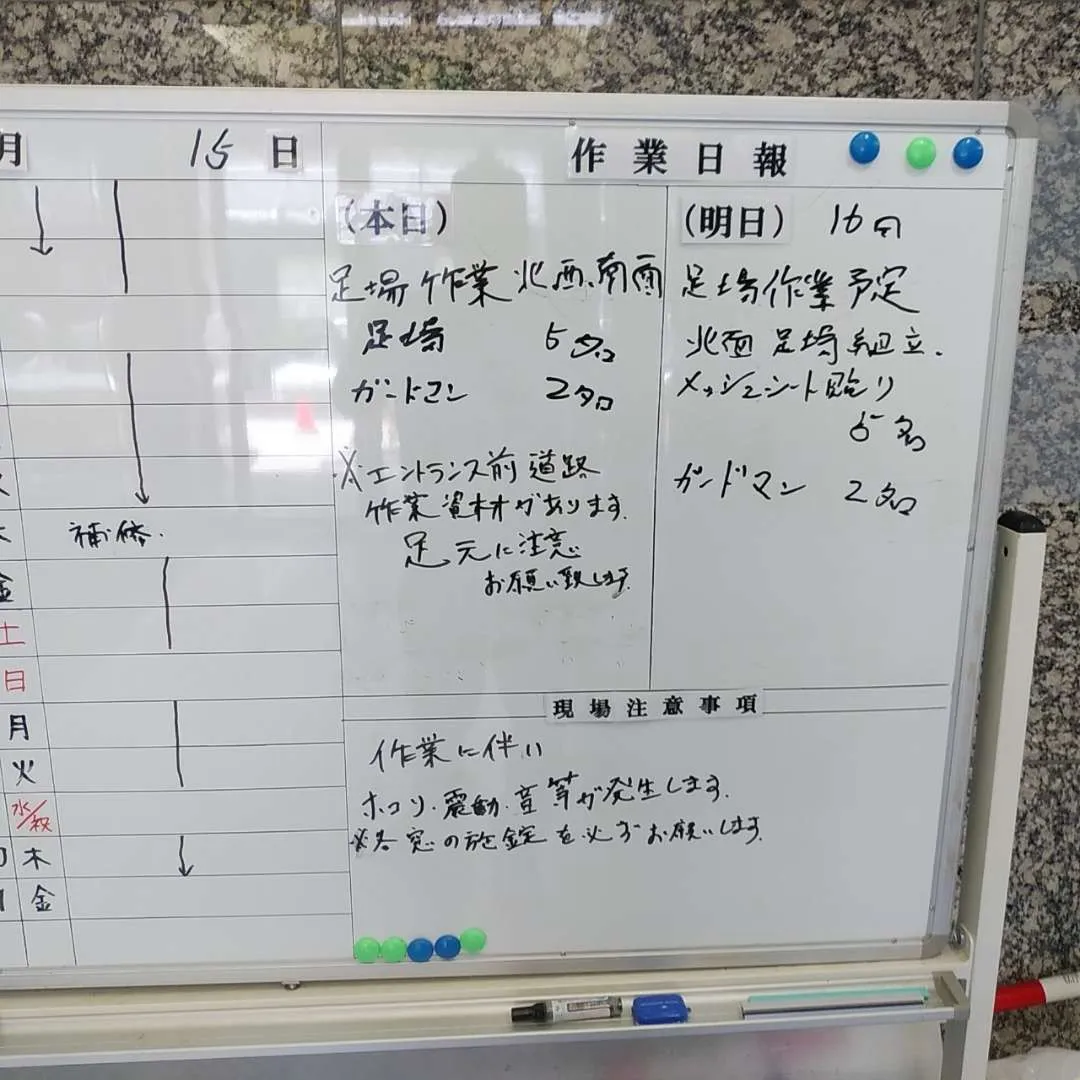 月 15 日
作業日報
(本日)
足場作業 北西、南面
足場 5名
ガードマン 2名
※エントランス前道路
作業資材があります。
足元に注意
お願い致します。
(明日) 16日
足場作業予定
北面 足場組立.
メッシュシート貼り
5名
ガードマン 2名
現場注意事項
作業に伴い
ホコリ・震動・音等が発生します。
※各窓の施錠を必ずお願いします。
補修.
金
土
日
月
火
水/祝
木
金